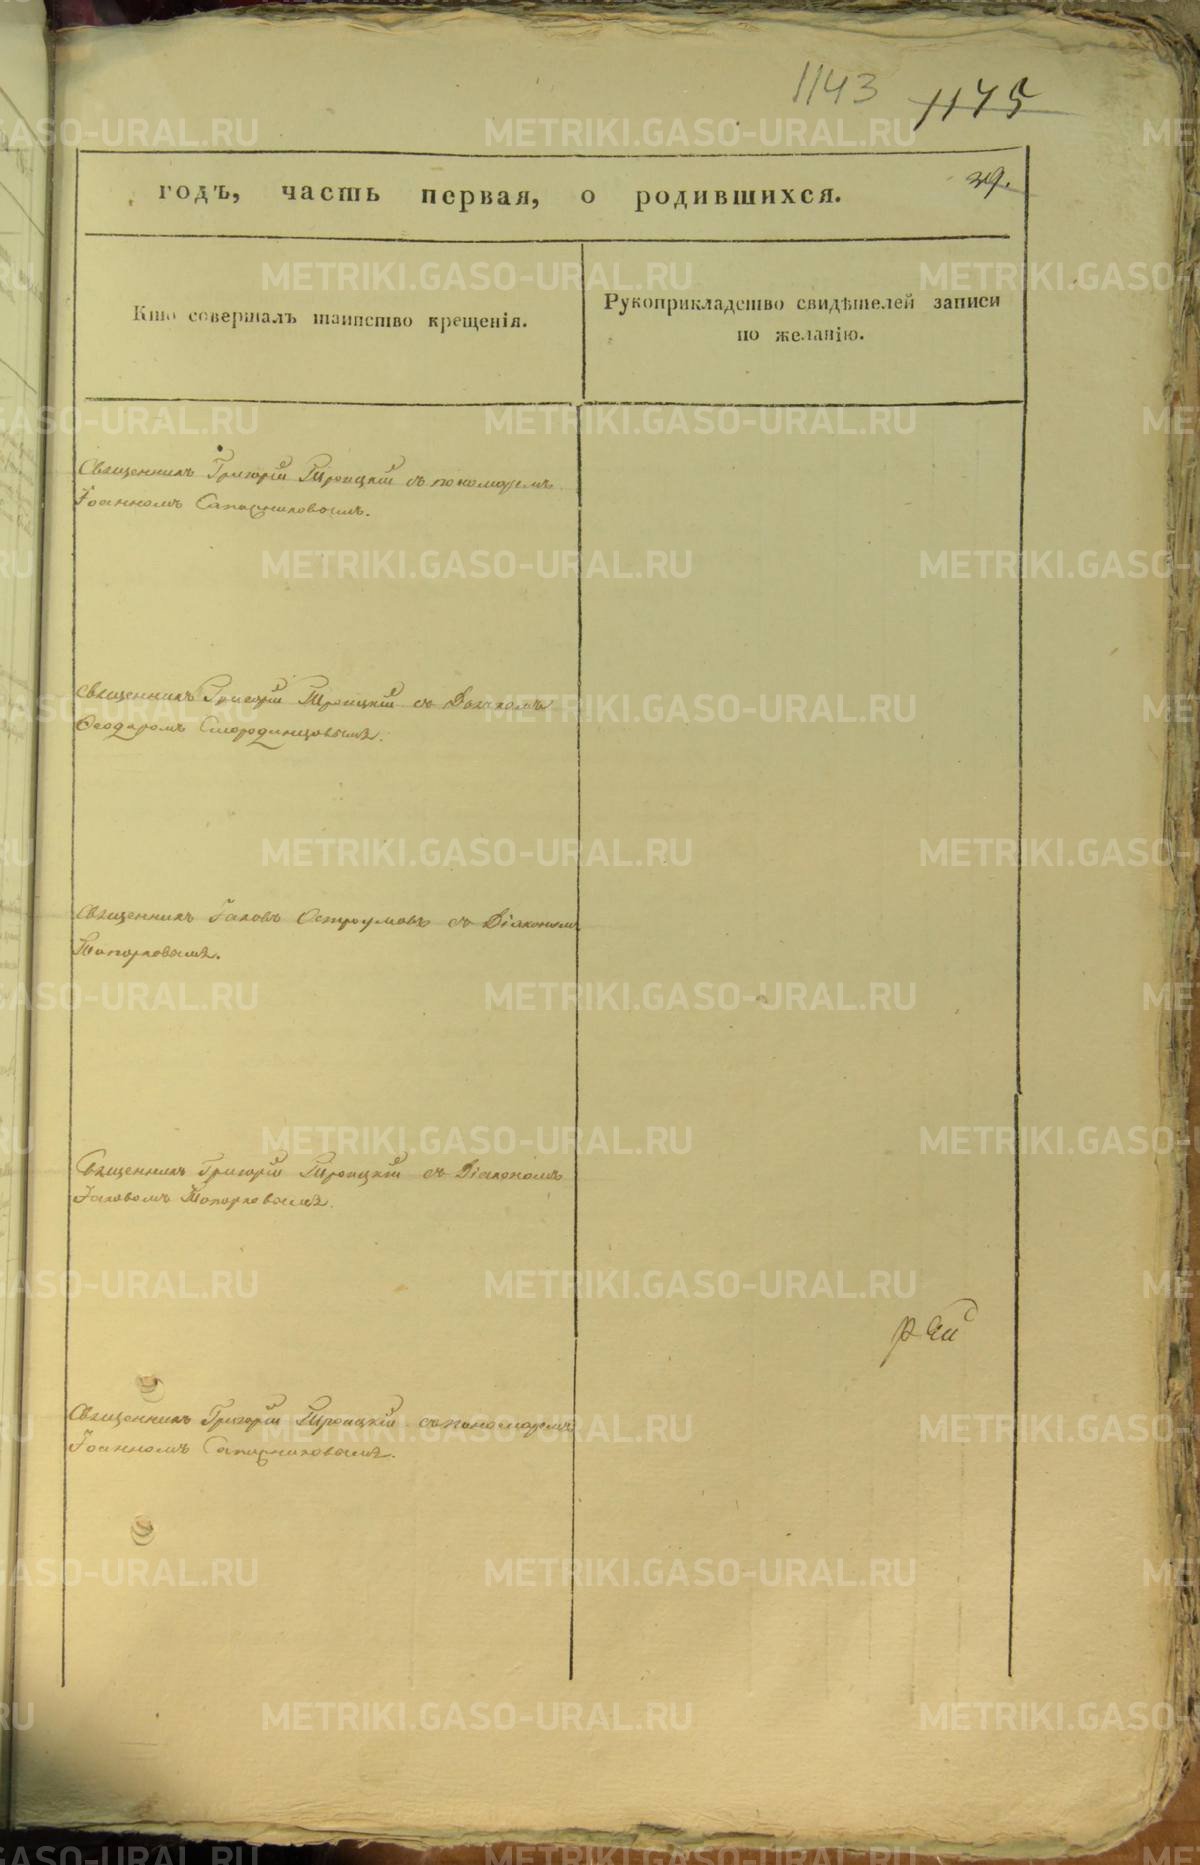 1143 1175
годъ, часть первая, о родившихся. 39.
Кто совершалъ таинство крещенія.
Рукоприкладство свидѣтелей записи
по желанію.
Священникъ Григорій Троицкій съ пономаремъ
Іоанномъ Сапожниковымъ.
Священникъ Григорій Троицкій съ Дьячкомъ
Ѳеодоромъ Смородинцовымъ.
Священникъ Іаковъ Остроумовъ съ Діакономъ
Топорковымъ.
Священникъ Григорій Троицкій съ Діакономъ
Іаковомъ Топорковымъ.
Священникъ Григорій Троицкій съ пономаремъ
Іоанномъ Сапожниковымъ.
METRIKI.GASO-URAL.RU